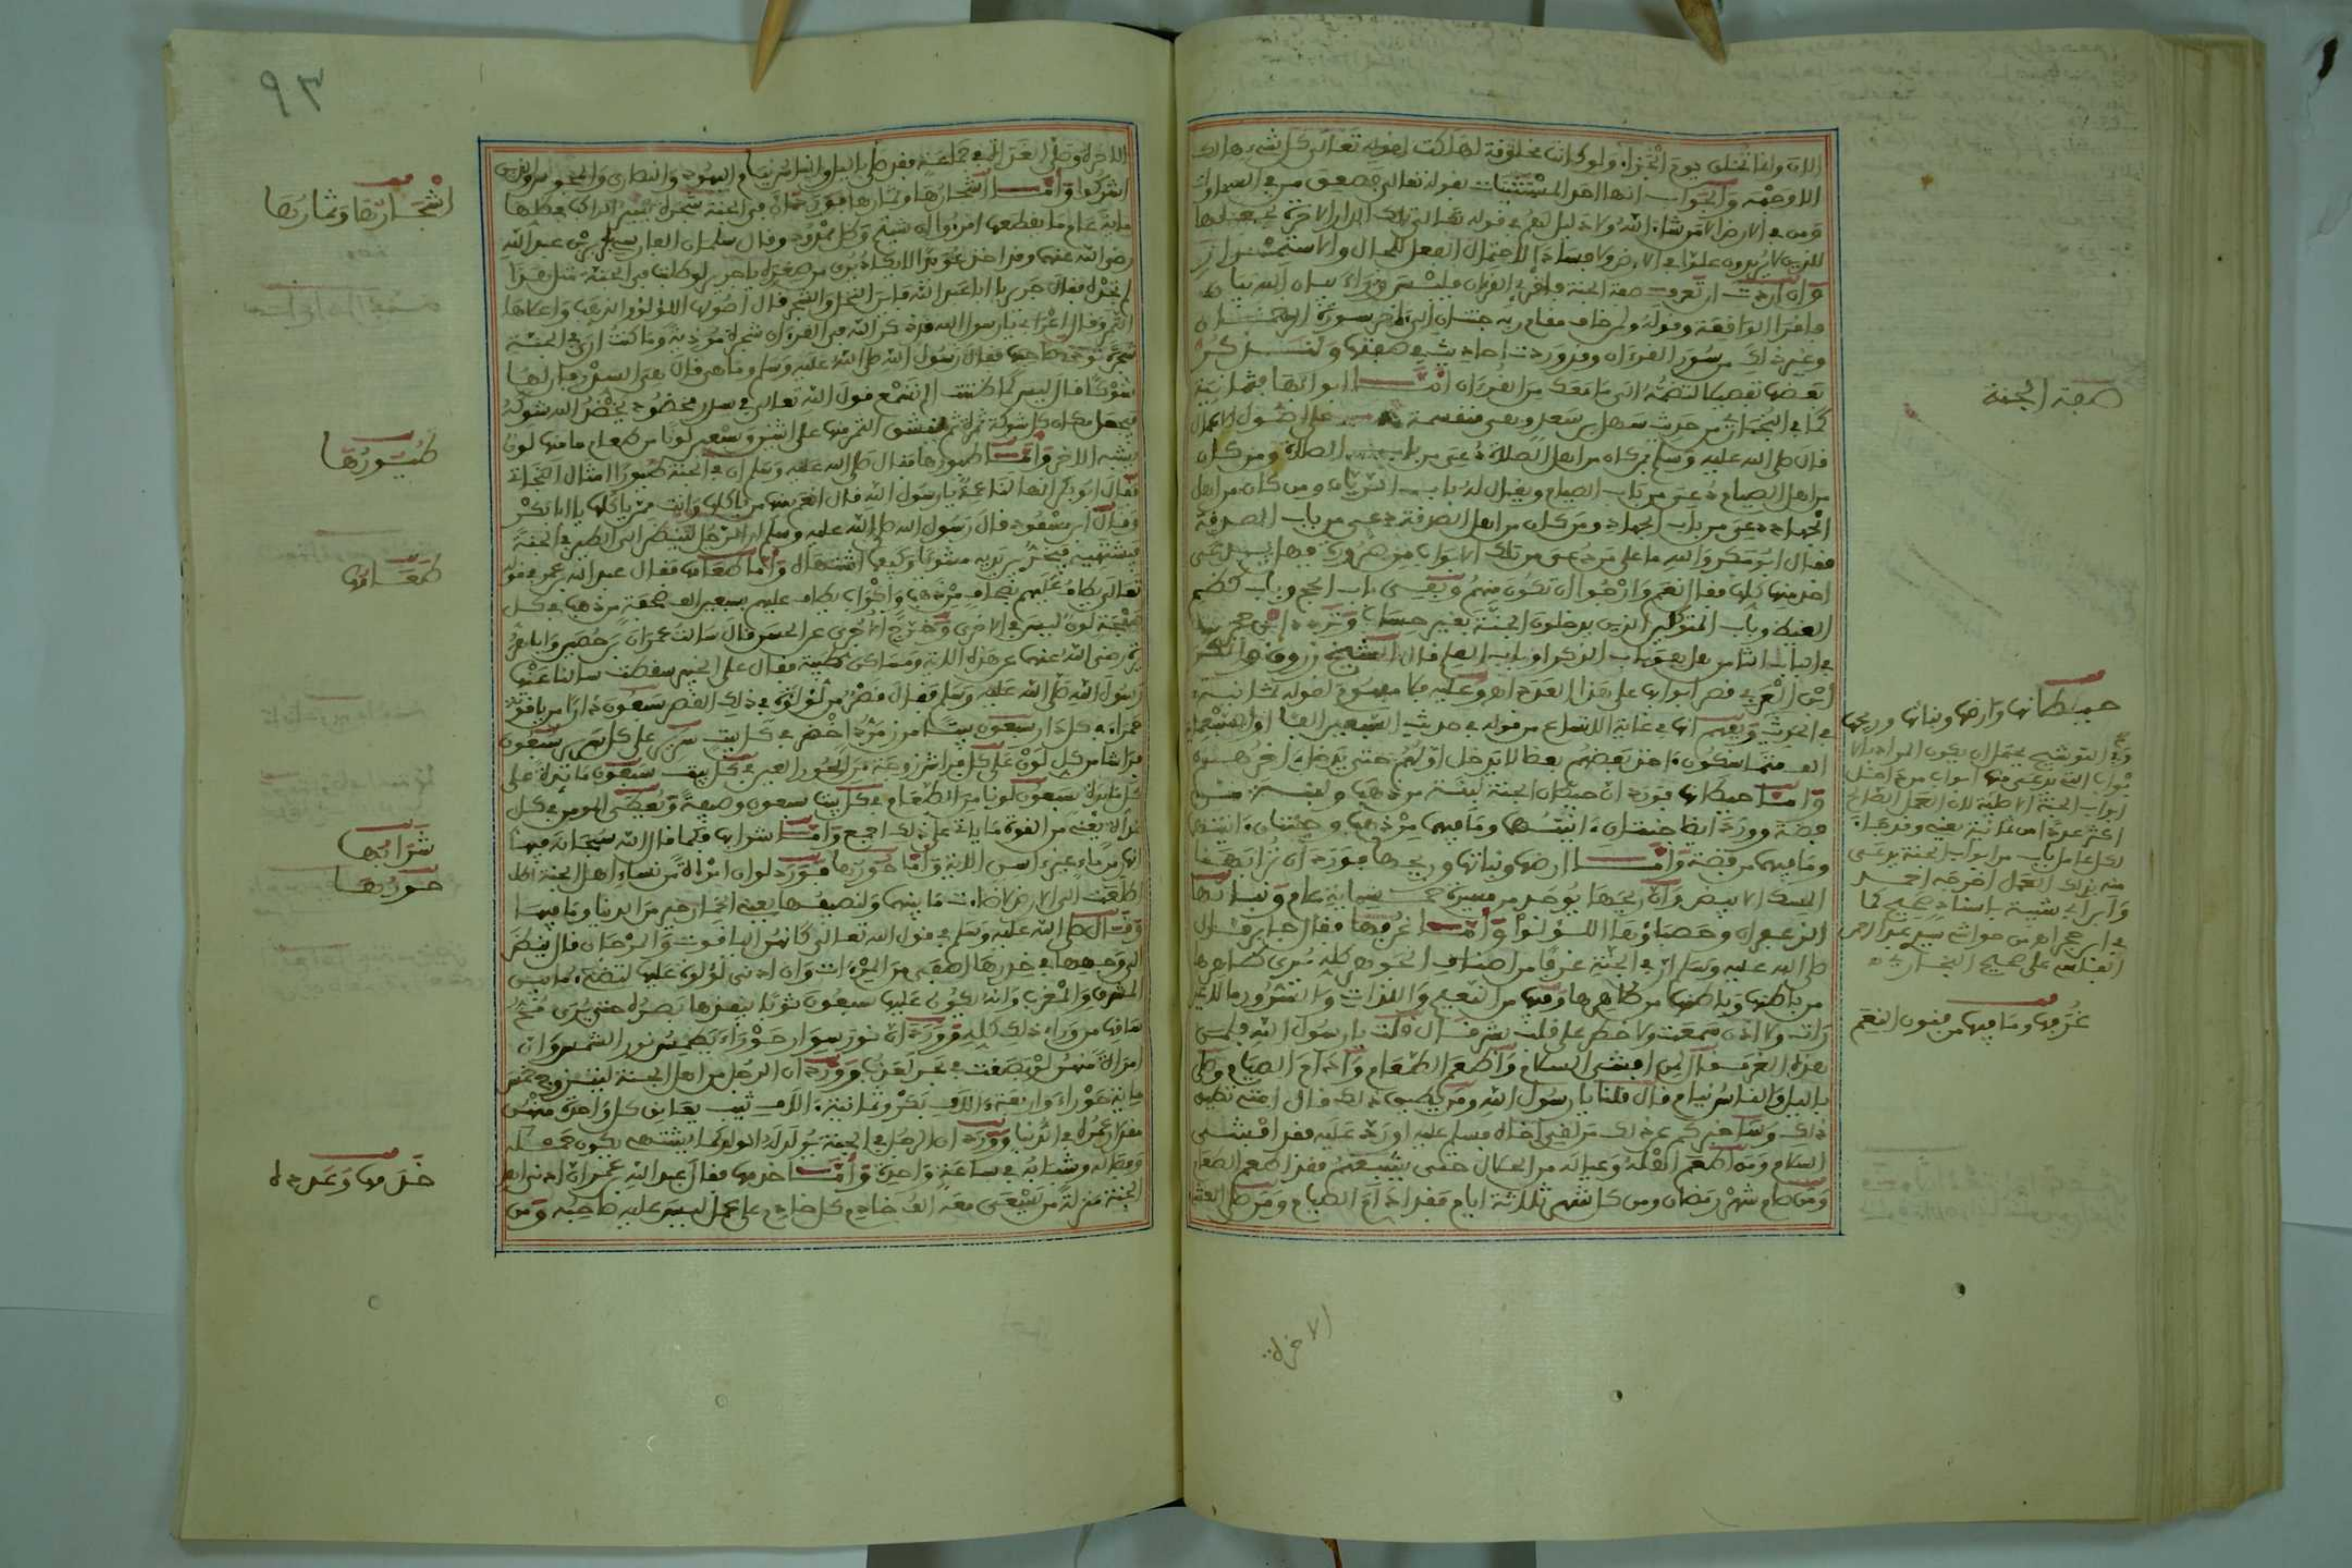 الان وانما تخلق يوم الجزاء ولو كانت مخلوقة لهلكت لقوله تعالى كل شيء هالك
الا وجهه والجواب انها من المستثنيات بقوله تعالى فصعق من في السماوات
ومن في الارض الا من شاء الله ولا دليل لهم في قوله تعالى تلك الدار الاخرة نجعلها
للذين لا يريدون علوا في الارض ولا فسادا لاحتمال الفعل للحال والاستمرار
وان اردت ان تعرف صفة الجنة فاقرا القرءان فليس وراء بيان الله بيان
فاقرا الواقعة وقوله ولمن خاف مقام ربه جنتان الى ءاخر سورة الرحمن
وغير ذلك من سور القرءان وقد وردت احاديث في صفتها ولنذكر
بعض تفصيلها لتضمه الى ما معك من القرءان اما ابوابها فثمانية
كما في البخاري من حديث سهل بن سعد وهي منقسمة على اصول الاعمال
قال صلى الله عليه وسلم من كان من اهل الصلاة دعي من باب الصلاة ومن كان
من اهل الصيام دعي من باب الصيام ويقال له باب الريان ومن كان من اهل
الجهاد دعي من باب الجهاد ومن كان من اهل الصدقة دعي من باب الصدقة
فقال ابو بكر والله ما على من دعي من تلك الابواب من ضرورة فهل يدعى
احد منها كلها فقال نعم وارجوا ان تكون منهم وبقي باب الحج وباب كظم
الغيظ وباب المتوكلين الذين يدخلون الجنة بغير حساب وتردد ابن حجر
في الباب الثامن هل هو باب الذكر او باب العلم قال الشيخ زروق
ابن العربي حصر ابوابها على هذا العدد
وفي
الف متماسكون ءاخذ بعضهم بعضا لا يدخل اولهم حتى يدخل ءاخرهم
واما حيطانها فورد ان حيطان الجنة لبنة من ذهب ولبنة من
فضة وورد ايضا جنتان ءانيتهما وما فيهما من ذهب وجنتان ءانيتهما
وما فيهما من فضة واما ارضها ونباتها وريحها فورد ان ترابها
المسك الابيض وان ريحها يوجد من مسيرة خمسمائة عام ونباتها
الزعفران وحصباؤها اللؤلؤ واما غرفها فقال جابر قال
صلى الله عليه وسلم ان في الجنة غرفا من اصناف الجوهر كله يرى ظاهرها
من باطنها وباطنها من ظاهرها وفيها من النعيم واللذات والسرور ما لا عين
رات ولا اذن سمعت ولا خطر على قلب بشر قال قلت يا رسول الله فلمن
هذه الغرف قال لمن افشى السلام واطعم الطعام وادام الصيام وصلى
بالليل والناس نيام قال قلنا يا رسول الله ومن يطيق ذلك قال امتي تطيق
ذلك وساخبركم عن ذلك من لقي اخاه فسلم عليه او رد عليه فقد افشى
السلام ومن اطعم اهله وعياله من الطعام حتى يشبعهم فقد اطعم الطعام
ومن صام شهر رمضان ومن كل شهر ثلاثة ايام فقد ادام الصيام ومن صلى العشاء
الاخرة
صفة الجنة
حيطانها وارضها ونباتها وريحها
غرفها وما فيها من فنون النعم
٩٣
الاخرة وصلى الغداة في جماعة فقد صلى بالليل والناس نيام اليهود والنصارى والمجوس والذين
اشركوا واما اشجارها وثمارها فورد ان في الجنة شجرة يسير الراكب في ظلها
مائة عام ما يقطعها اقرءوا ان شئتم وظل ممدود وقال سلمان الفارسي لجرير بن عبد الله
رضي الله عنهما وقد اخذ عويدا لا يكاد يرى من صغره يا جرير لو طلبت في الجنة مثل هذا
لم تجده فقال جرير يا ابا عبد الله فاين النخل والشجر قال اصولها اللؤلؤ والذهب واعلاها
الثمر وقال اعرابي يا رسول الله قد ذكر الله في القرءان شجرة موذية وما كنت ارى في الجنة
شجرة توذي صاحبها فقال رسول الله صلى الله عليه وسلم وما هي قال هي السدر فان لها
شوكا قال ليس كما ظننت الم تسمع قول الله تعالى في سدر مخضود يخضد الله شوكه
فيجعل مكان كل شوكة ثمرة ثم تنفتق الثمر منها على اثنين وسبعين لونا من طعام ما منها لون
يشبه الاخر واما طيورها فقال صلى الله عليه وسلم ان في الجنة طيورا امثال البخاتي
فقال ابو بكر انها لناعمة يا رسول الله قال انعم منها من ياكلها وانت ممن ياكلها يا ابا بكر
وقال ابن مسعود قال رسول الله صلى الله عليه وسلم ان الرجل لينظر الى الطير في الجنة
فيشتهيه فيخر بين يديه مشويا وكيف اشتهاه واما طعامها فقال عبد الله بن عمر في قوله
تعالى يطاف عليهم بصحاف من ذهب واكواب يطاف عليهم بسبعين الف صحفة من ذهب في كل
صحفة لون ليس في الاخرى وخرج الاجري عن الحسن قال سالت عمران بن حصين وابا هريرة
رضي الله عنهما عن هذه الاية ومساكن طيبة فقالا على الخبير سقطت سالنا عنها
رسول الله صلى الله عليه وسلم فقال قصر من لؤلؤة في ذلك القصر سبعون دارا من ياقوتة
حمراء في كل دار سبعون بيتا من زمرد اخضر في كل بيت سرير على كل سرير سبعون
فراشا من كل لون على كل فراش زوجة من الحور العين في كل بيت سبعون مائدة على
كل مائدة سبعون لونا من الطعام في كل بيت سبعون وصيفة ويعطى المومن في كل
غداة يعني من القوة ما ياتي على ذلك اجمع واما شرابها فكما قال الله سبحانه فيها
انهار من ماء غير ءاسن الاية واما حورها فورد لو ان امراة من نساء اهل الجنة
اطلعت الى الارض لاضاءت ما بينهما ولنصيفها يعني الخمار خير من الدنيا وما فيها
وقال صلى الله عليه وسلم في قول الله تعالى كانهن الياقوت والمرجان قال ينظر
الى وجهها في خدرها اصفى من المرءات وان ادنى لؤلؤة عليها لتضيء ما بين
المشرق والمغرب وانه يكون عليها سبعون ثوبا ينفذها بصره حتى يرى مخ
ساقها من وراء ذلك كله وورد ان نور سوار حوراء يطمس نور الشمس وان
امراة منهن لو بصقت في بحر لعذب وورد ان الرجل من اهل الجنة ليتزوج خمس
مائة حوراء واربعة ءالاف بكر وثمانية ءالاف ثيب يعانق كل واحدة منهن
مقدار عمره في الدنيا وورد ان الرجل في الجنة يولد له الولد كما يشتهي يكون حمله
وفصاله وشبابه في ساعة واحدة واما خدمها فقال عبد الله بن عمر ان ادنى اهل
الجنة منزلة من يسعى معه الف خادم كل خادم على عمل ليس عليه صاحبه ومن
اشجارها وثمارها
طيورها
طعامها
شرابها
حورها
خدمها وعدده